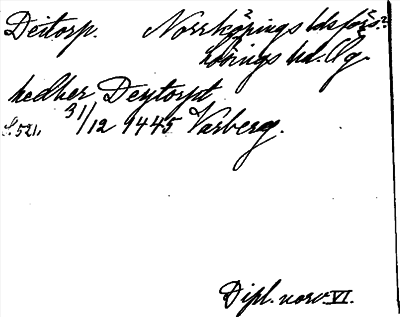 Deitorp. Norrköpings lds förs.?
hörings hd. Ög.
nedher Deytorpt
S. 521. 31/12 1445 Varberg.
Dipl. norv. VI.